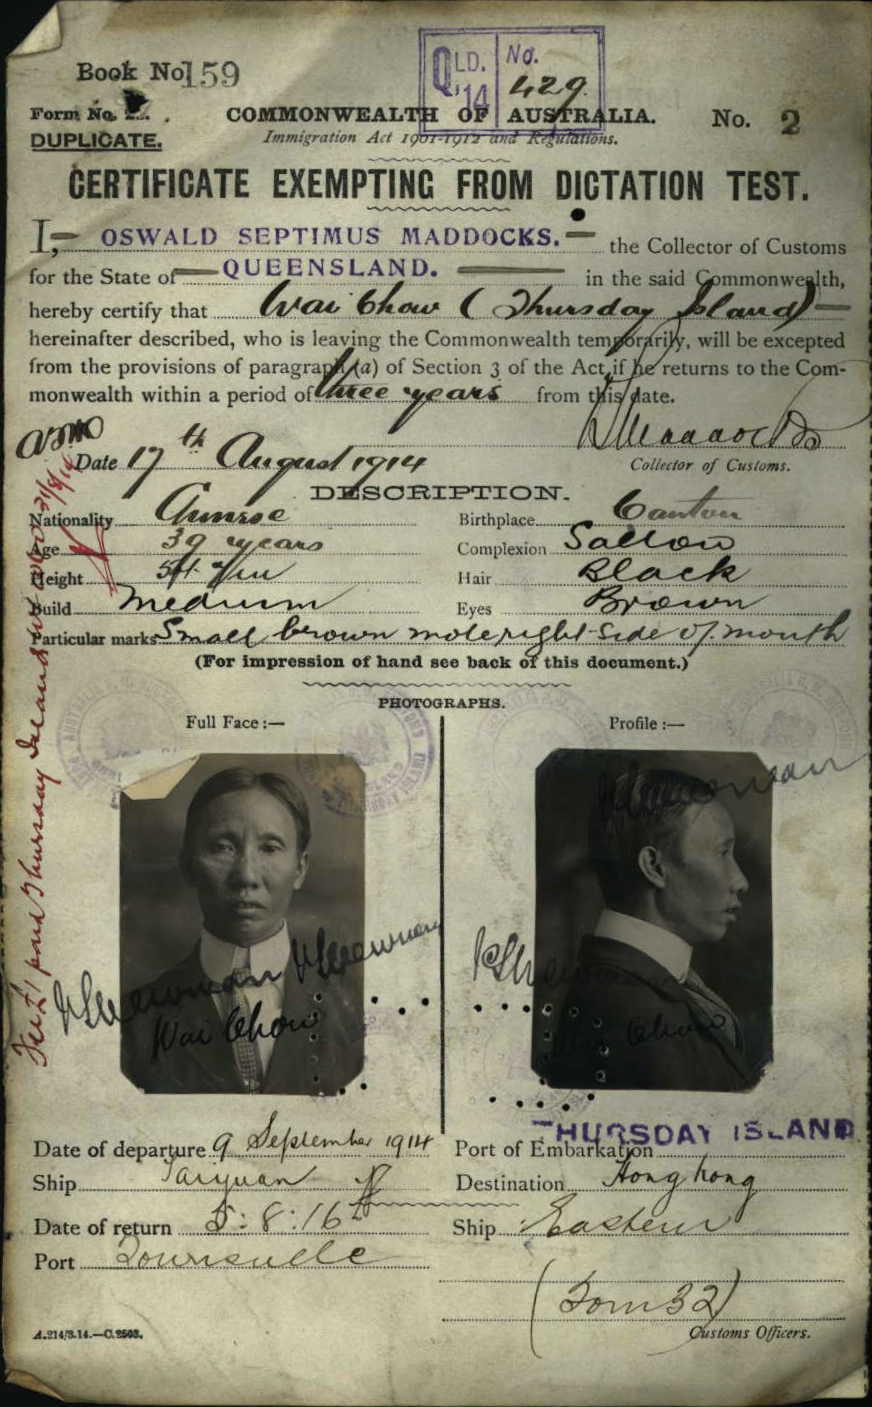 QLD. '14 No. 429.
Book No. 159
Form No.
DUPLICATE.
COMMONWEALTH OF AUSTRALIA.
No. 2
Immigration Act 1901-1912 and Regulations.
CERTIFICATE EXEMPTING FROM DICTATION TEST.
I, OSWALD SEPTIMUS MADDOCKS. the Collector of Customs
for the State of QUEENSLAND. in the said Commonwealth,
hereby certify that Wai Chow (Thursday Island)
hereinafter described, who is leaving the Commonwealth temporarily, will be excepted
from the provisions of paragraph (a) of Section 3 of the Act if he returns to the Com-
monwealth within a period of three years from this date.
Maddocks
Date 17th August 1914
Collector of Customs.
DESCRIPTION.
Nationality Chinese Birthplace Canton
Age 39 years Complexion Sallow
Height 5ft in Hair Black
Build Medium Eyes Brown
Particular marks Small brown mole right side of mouth
(For impression of hand see back of this document.)
PHOTOGRAPHS.
Full Face :— Profile :—
Fee £1 paid Thursday Island
Wai Chow
Wai Chow
THURSDAY ISLAND
Date of departure 9 September 1914 Port of Embarkation
Ship Taiyuan Destination Hong Kong
Date of return 5:8:16 Ship Eastern
Port Townsville
(Tom 32)
A.214/3.14.—C.2503. Customs Officers.